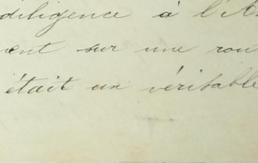 diligence à l'A
ent sur une rou
était un véritable